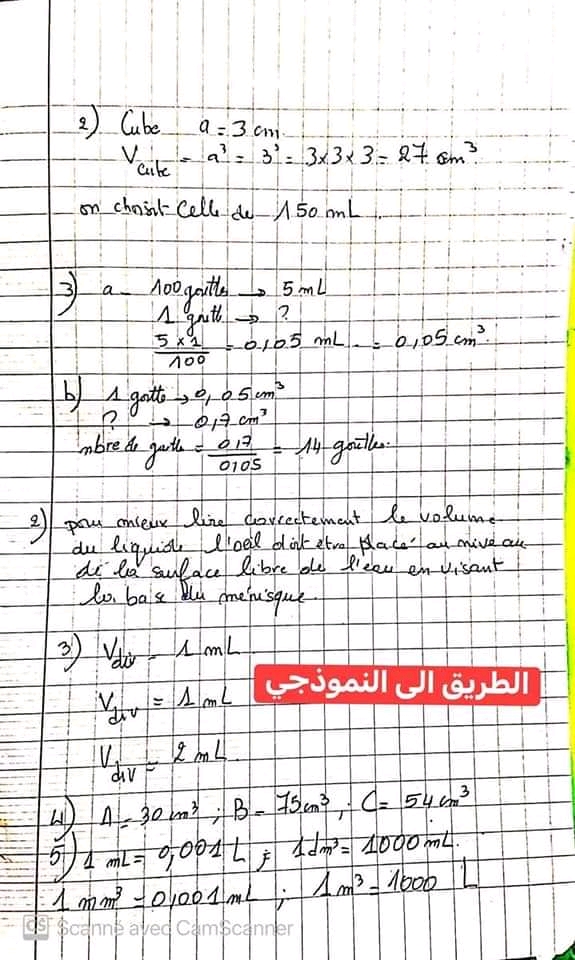 2) Cube a = 3 cm.
V cube = a³ = 3³ = 3x3x3 = 27 cm³
on choisit celle de 150 mL.
3) a - 100 gouttes → 5 mL
1 goutt → ?
5 x 1 / 100 = 0,05 mL = 0,05 cm³.
b) 1 goutte → 0,05 cm³
? → 0,7 cm³
nbre de goutte = 0,7 / 0,05 = 14 gouttes.
2) pour mieux lire correctement le volume
du liquide l'oeil doit etre placé au niveau
de la surface libre de l'eau en visant
la base du ménisque.
3) Vdiv = 1 mL
الطريق الى النموذجي
Vdiv = 1 mL
Vdiv = 2 mL.
4) A = 30 cm³ ; B = 75 cm³ ; C = 54 cm³
5) 1 mL = 0,001 L ; 1 dm³ = 1000 mL.
1 mm³ = 0,001 mL ; 1 m³ = 1000 L
CS Scanné avec CamScanner